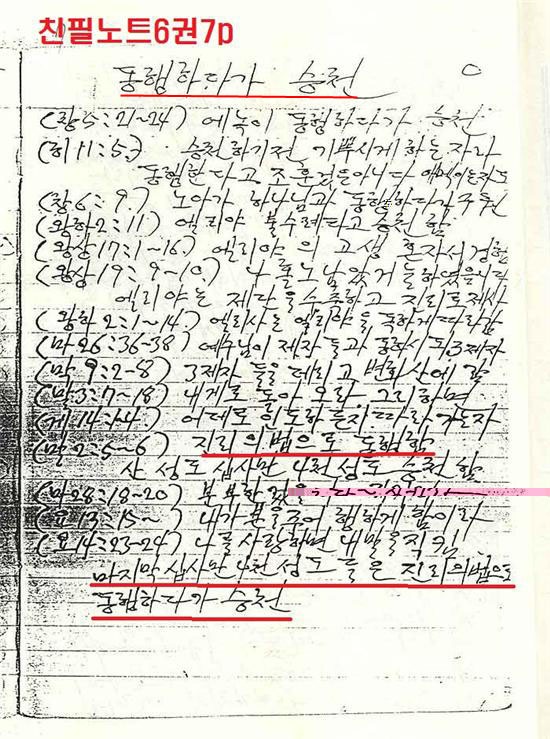 친필노트6권7p
동행하다가 승천
(창5:21~24) 에녹이 동행하다가 승천
(히11:5.) 승천하기전 기쁘시게하는자라
동행한다고 조흔것은아니다
(창6:9.) 노아가 하나님과 동행하다가
(왕하2:11) 엘리야 불수레타고 승천함
(왕상17:1~16) 엘리야의 고생 혼자서 경험
(왕상19:9~10) 나홀노남았거늘하였으나
엘리야는 제단을수축하고 진리로제사
(왕하2:1~14) 엘리사는 엘리야을 독하게따라감
(마26:36-38) 예수님이 제자들과 동행시 3제자
(막9:2-8) 3제자들을 데리고 변화산에 감
(막3:7~18) 내게로 돌아오라 그리하면
(계14:1-4.) 어데로 인도하든지 따라가는자
(말2:5~6) 진리의법으로 동행함
산 성도 십사만사천성도 승천함
(마28:18~20) 부부한것을
(요13:15~) 내가본을주어 행하게 함이라
(요14:23-24) 나를사랑하면 내말을직킴
마지막십사만사천성도들은 진리의법으로
동행하다가 승천